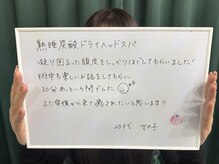 熟睡炭酸ドライヘッドスパ
凝り固まった頭皮をしっかりほぐしてもらいました!
術中も楽しいお話をしてもらい、
30分あっという間でした
また愛媛から来て癒されたいと思います!!
20代 女の子